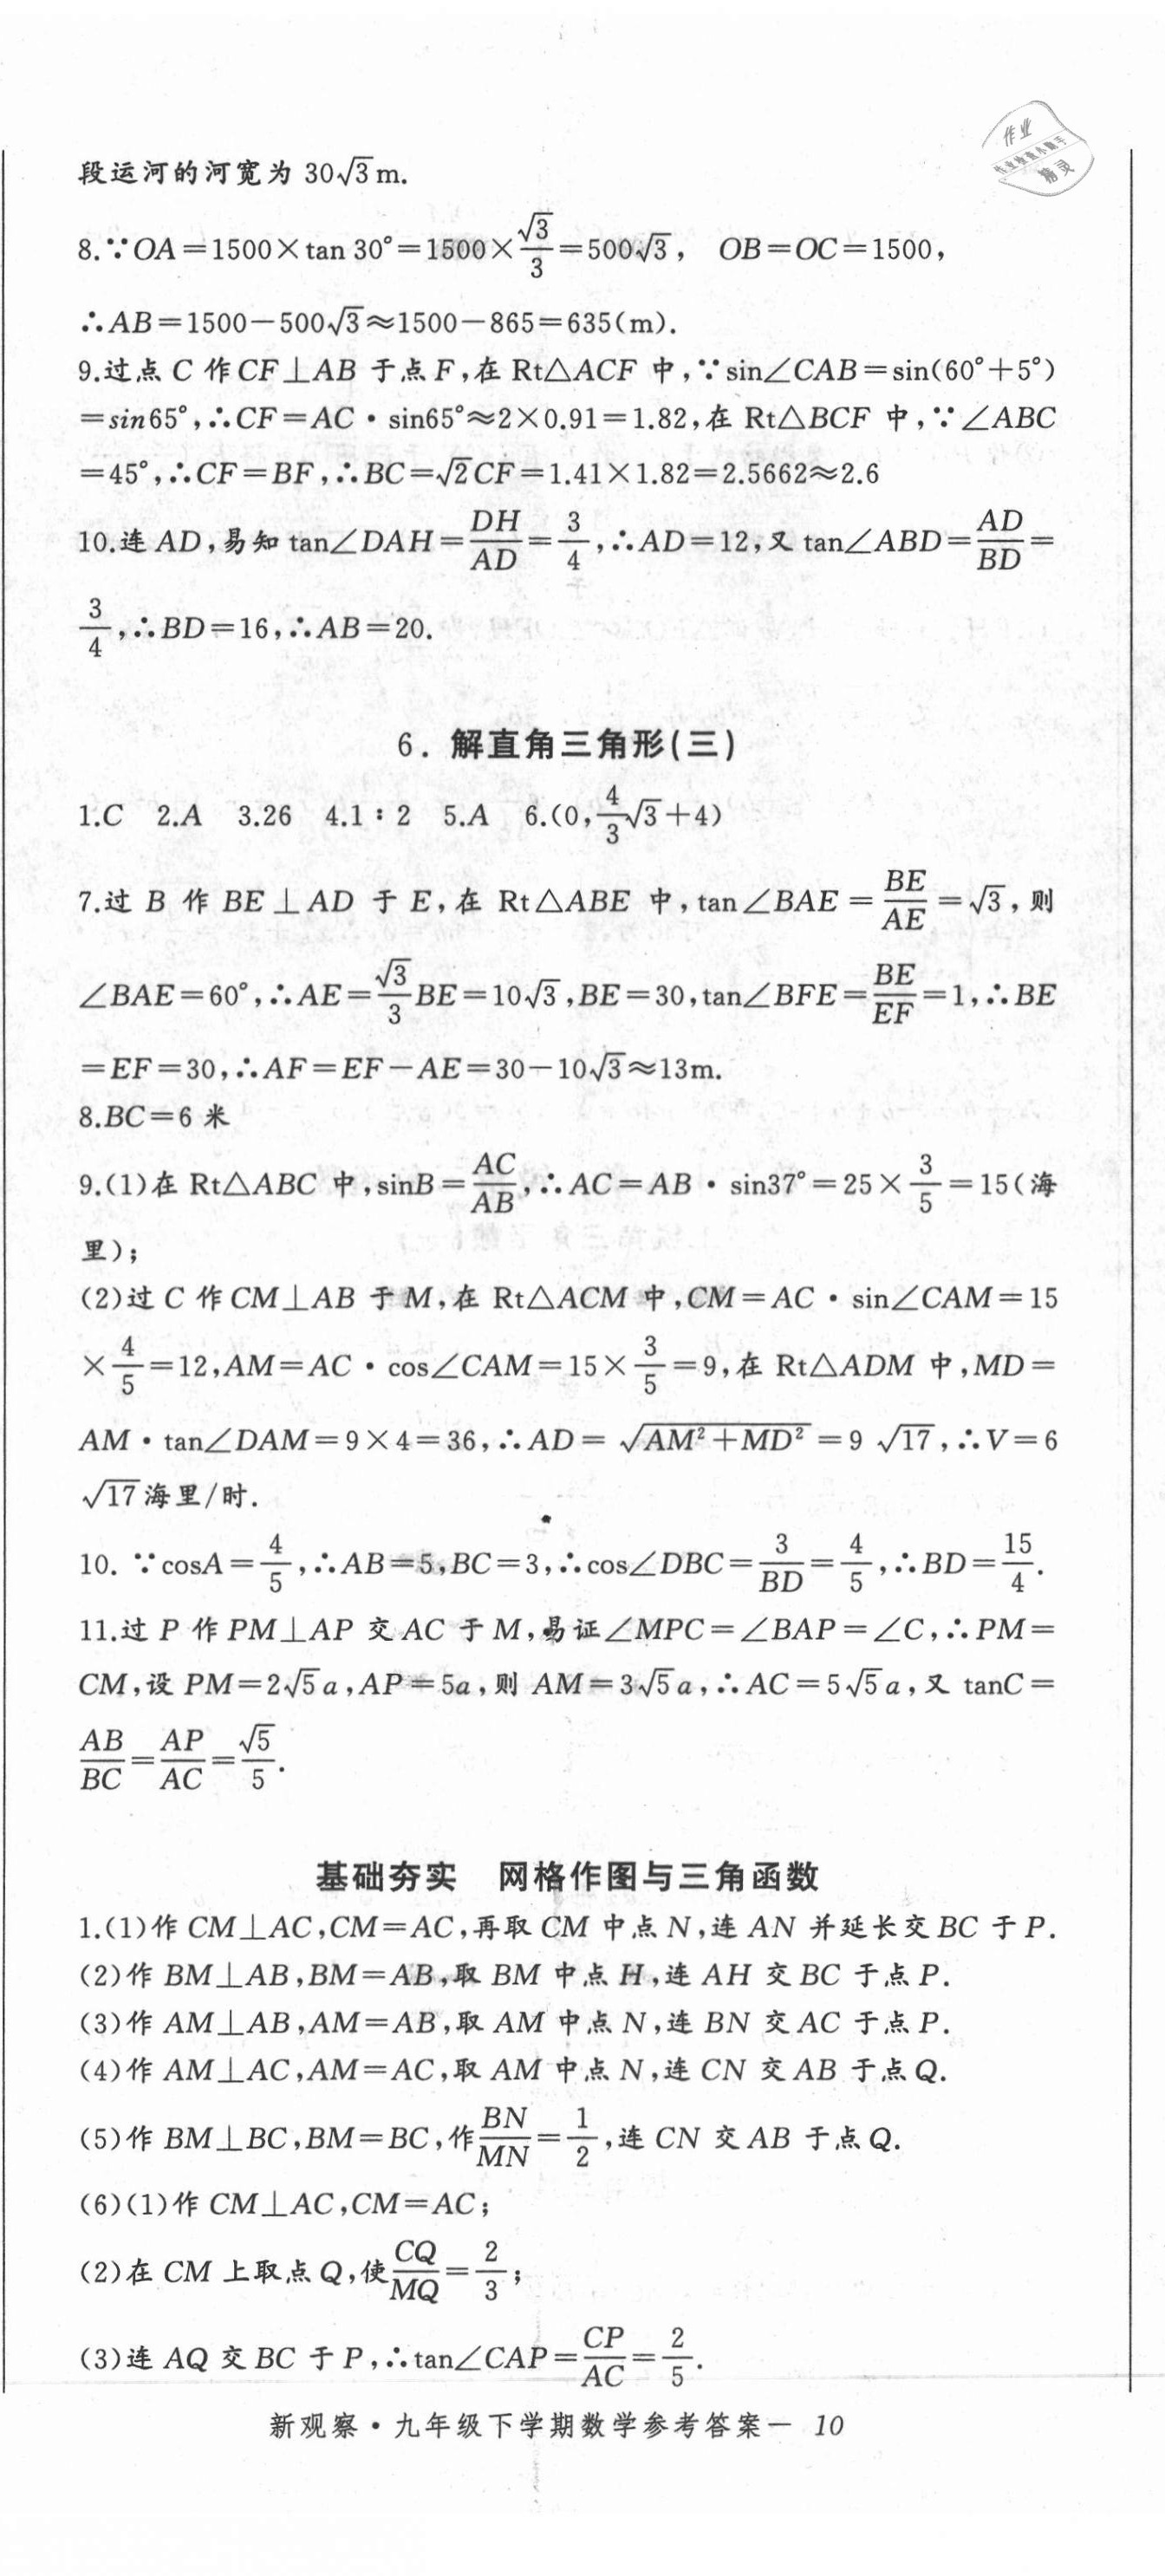 作业
作业检查小助手
精灵
段运河的河宽为 30√3m.
8.∵OA=1500×tan 30°=1500×√3/3=500√3, OB=OC=1500,
∴AB=1500-500√3≈1500-865=635(m).
9.过点 C 作 CF⊥AB 于点 F,在 Rt△ACF 中,∵sin∠CAB=sin(60°+5°)
=sin65°,∴CF=AC·sin65°≈2×0.91=1.82,在 Rt△BCF 中,∵∠ABC
=45°,∴CF=BF,∴BC=√2CF=1.41×1.82=2.5662≈2.6
10.连 AD,易知 tan∠DAH=DH/AD=3/4,∴AD=12,又 tan∠ABD=AD/BD=
3/4,∴BD=16,∴AB=20.
6. 解直角三角形(三)
1.C 2.A 3.26 4.1:2 5.A 6.(0,4/3√3+4)
7.过 B 作 BE⊥AD 于 E,在 Rt△ABE 中,tan∠BAE=BE/AE=√3,则
∠BAE=60°,∴AE=√3/3BE=10√3,BE=30,tan∠BFE=BE/EF=1,∴BE
=EF=30,∴AF=EF-AE=30-10√3≈13m.
8.BC=6 米
9.(1)在 Rt△ABC 中,sinB=AC/AB,∴AC=AB·sin37°=25×3/5=15(海
里);
(2)过 C 作 CM⊥AB 于 M,在 Rt△ACM 中,CM=AC·sin∠CAM=15
×4/5=12,AM=AC·cos∠CAM=15×3/5=9,在 Rt△ADM 中,MD=
AM·tan∠DAM=9×4=36,∴AD=√(AM²+MD²)=9√17,∴V=6
√17海里/时.
10. ∵cosA=4/5,∴AB=5,BC=3,∴cos∠DBC=3/BD=4/5,∴BD=15/4.
11.过 P 作 PM⊥AP 交 AC 于 M,易证∠MPC=∠BAP=∠C,∴PM=
CM,设 PM=2√5a,AP=5a,则 AM=3√5a,∴AC=5√5a,又 tanC=
AB/BC=AP/AC=√5/5.
基础夯实 网格作图与三角函数
1.(1)作 CM⊥AC,CM=AC,再取 CM 中点 N,连 AN 并延长交 BC 于 P.
(2)作 BM⊥AB,BM=AB,取 BM 中点 H,连 AH 交 BC 于点 P.
(3)作 AM⊥AB,AM=AB,取 AM 中点 N,连 BN 交 AC 于点 P.
(4)作 AM⊥AC,AM=AC,取 AM 中点 N,连 CN 交 AB 于点 Q.
(5)作 BM⊥BC,BM=BC,作BN/MN=1/2,连 CN 交 AB 于点 Q.
(6)(1)作 CM⊥AC,CM=AC;
(2)在 CM 上取点 Q,使CQ/MQ=2/3;
(3)连 AQ 交 BC 于 P,∴tan∠CAP=CP/AC=2/5.
新观察·九年级下学期数学参考答案— 10